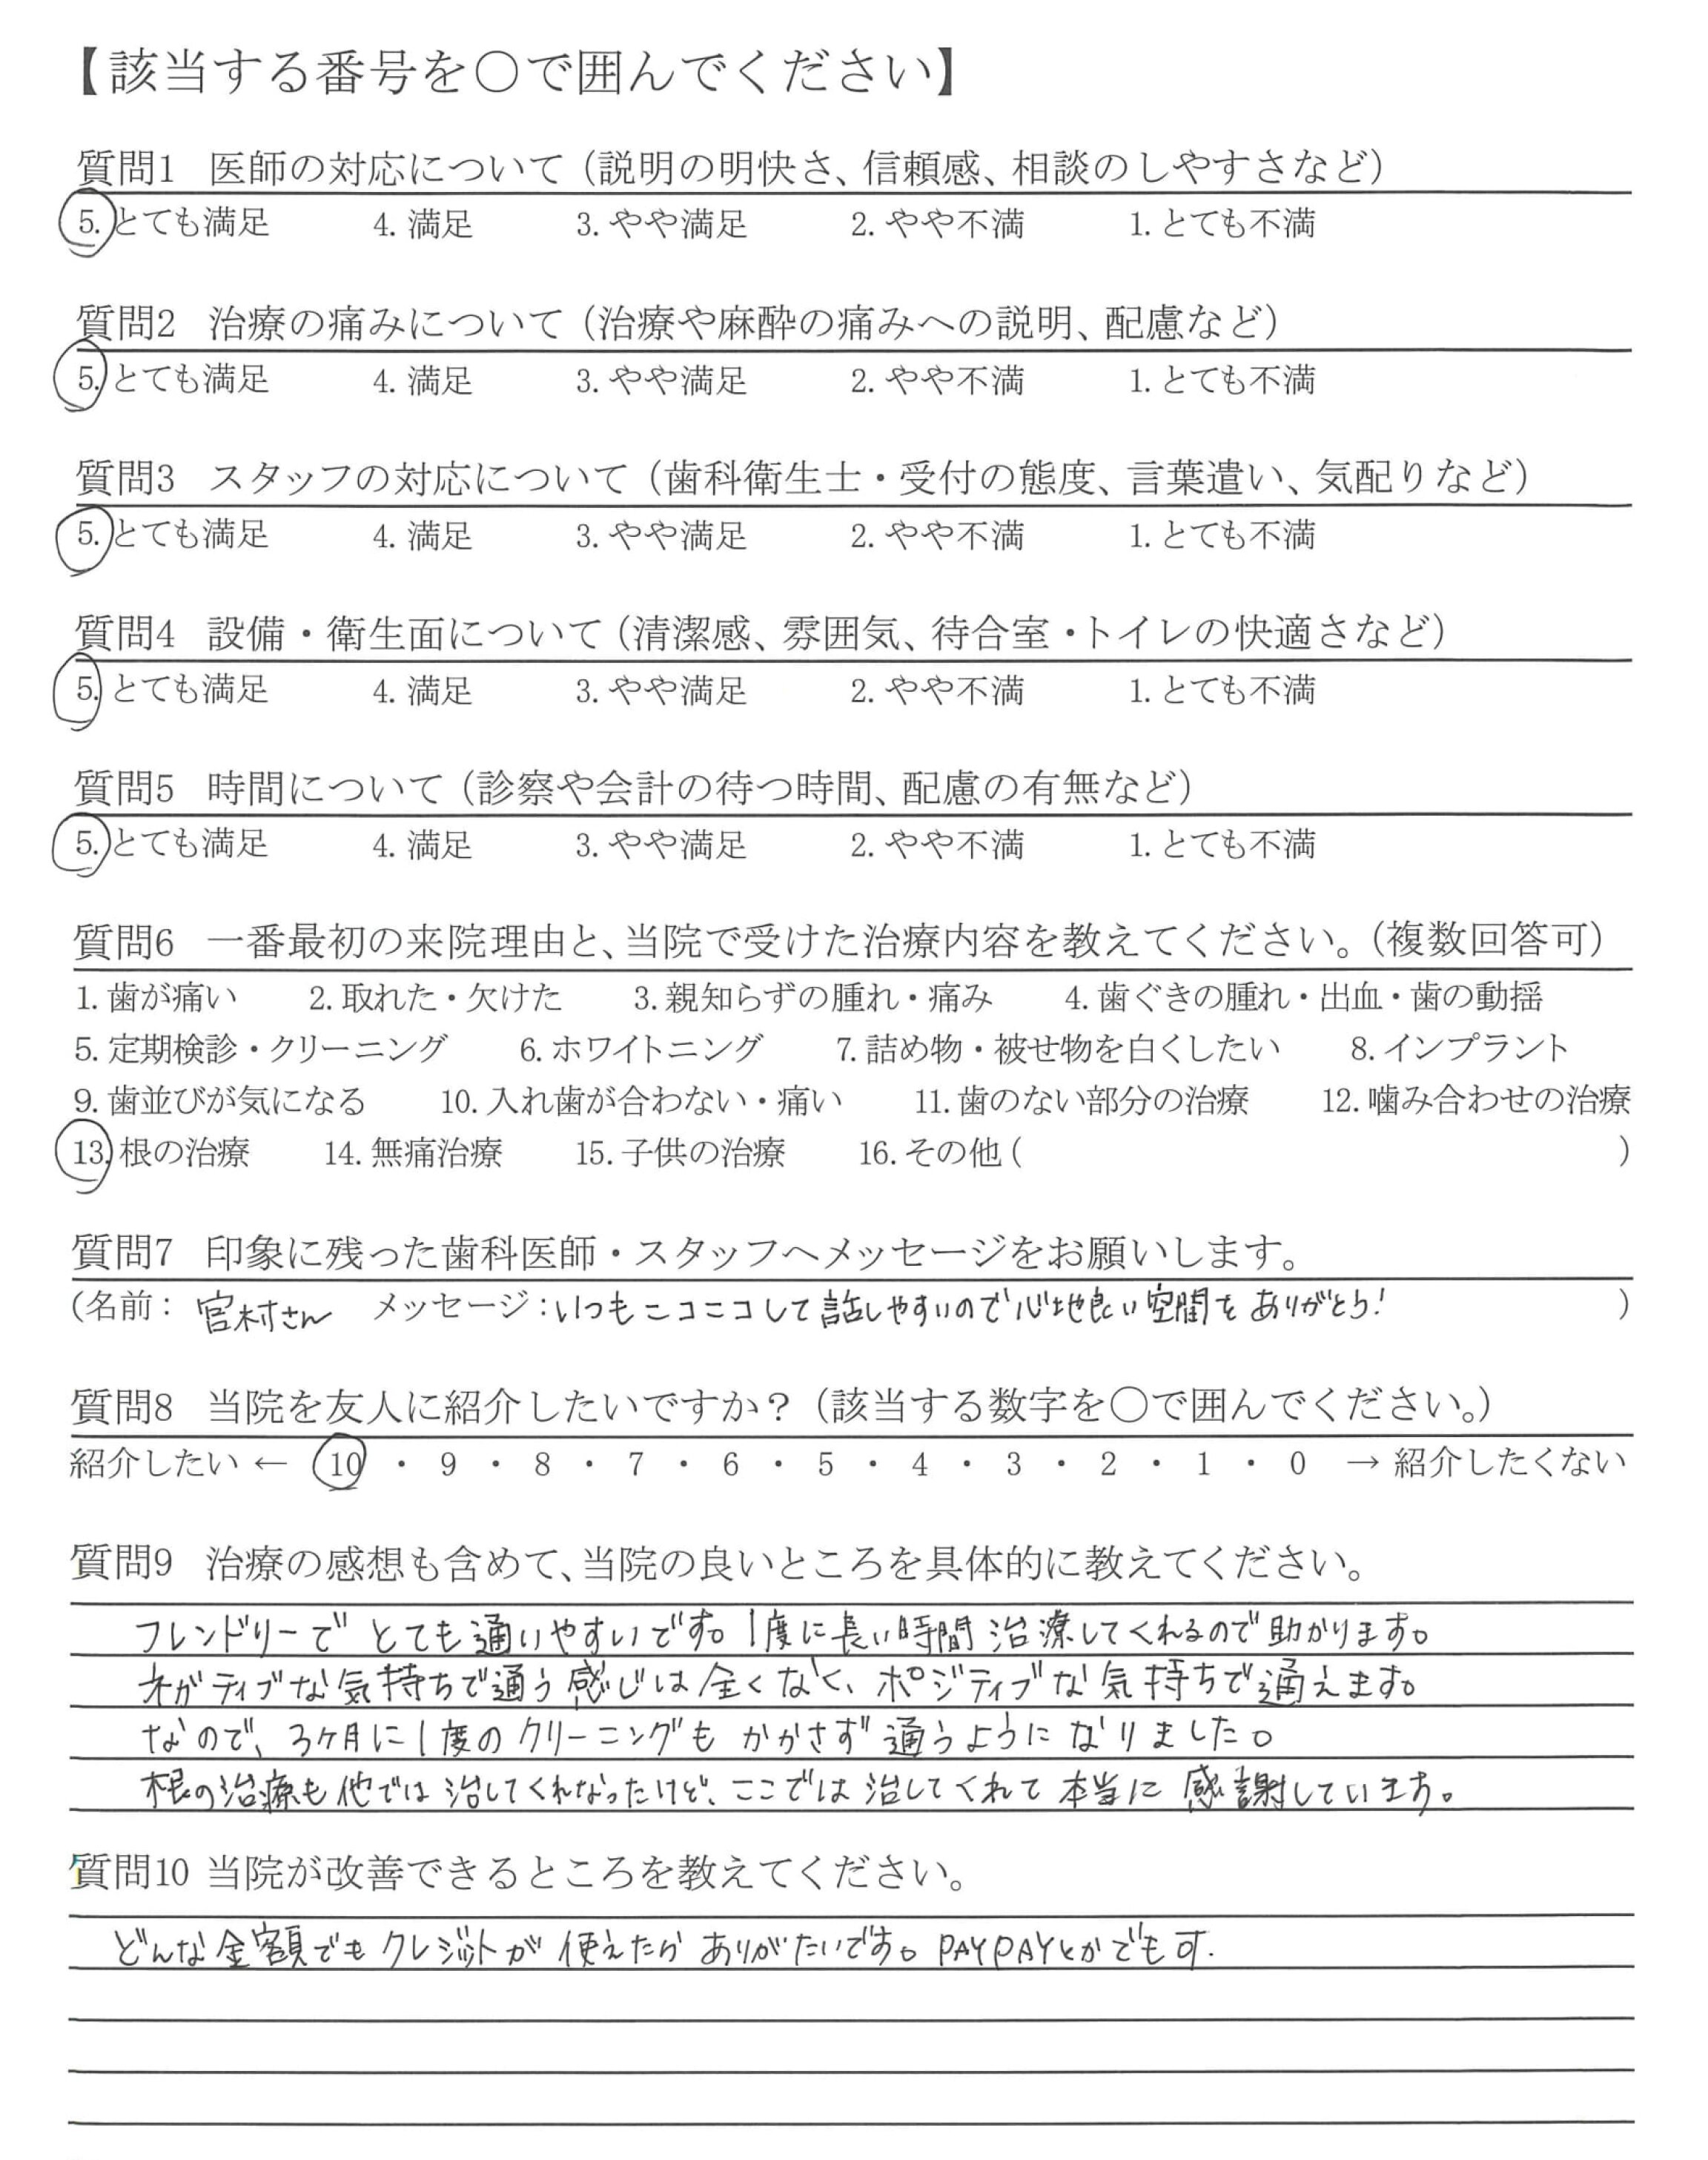 【該当する番号を〇で囲んでください】
質問1 医師の対応について（説明の明快さ、信頼感、相談のしやすさなど）
5. とても満足 4. 満足 3. やや満足 2. やや不満 1. とても不満
質問2 治療の痛みについて（治療や麻酔の痛みへの説明、配慮など）
5. とても満足 4. 満足 3. やや満足 2. やや不満 1. とても不満
質問3 スタッフの対応について（歯科衛生士・受付の態度、言葉遣い、気配りなど）
5. とても満足 4. 満足 3. やや満足 2. やや不満 1. とても不満
質問4 設備・衛生面について（清潔感、雰囲気、待合室・トイレの快適さなど）
5. とても満足 4. 満足 3. やや満足 2. やや不満 1. とても不満
質問5 時間について（診察や会計の待つ時間、配慮の有無など）
5. とても満足 4. 満足 3. やや満足 2. やや不満 1. とても不満
質問6 一番最初の来院理由と、当院で受けた治療内容を教えてください。（複数回答可）
1. 歯が痛い 2. 取れた・欠けた 3. 親知らずの腫れ・痛み 4. 歯ぐきの腫れ・出血・歯の動揺
5. 定期検診・クリーニング 6. ホワイトニング 7. 詰め物・被せ物を白くしたい 8. インプラント
9. 歯並びが気になる 10. 入れ歯が合わない・痛い 11. 歯のない部分の治療 12. 噛み合わせの治療
13. 根の治療 14. 無痛治療 15. 子供の治療 16. その他 ( )
質問7 印象に残った歯科医師・スタッフへメッセージをお願いします。
(名前： 宮村さん メッセージ：いつもニコニコして話しやすいので心地良い空間をありがとう! )
質問8 当院を友人に紹介したいですか？（該当する数字を〇で囲んでください。）
紹介したい ← 10 ・ 9 ・ 8 ・ 7 ・ 6 ・ 5 ・ 4 ・ 3 ・ 2 ・ 1 ・ 0 → 紹介したくない
質問9 治療の感想も含めて、当院の良いところを具体的に教えてください。
フレンドリーでとても通いやすいです。1度に長い時間治療してくれるので助かります。
ネガティブな気持ちで通う感じは全くなく、ポジティブな気持ちで通えます。
なので、3ヶ月に1度のクリーニングもかかさず通うようになりました。
根の治療も他では治してくれなったけど、ここでは治してくれて本当に感謝しています。
質問10 当院が改善できるところを教えてください。
どんな金額でもクレジットが使えたらありがたいです。PAYPAYとかでも可.